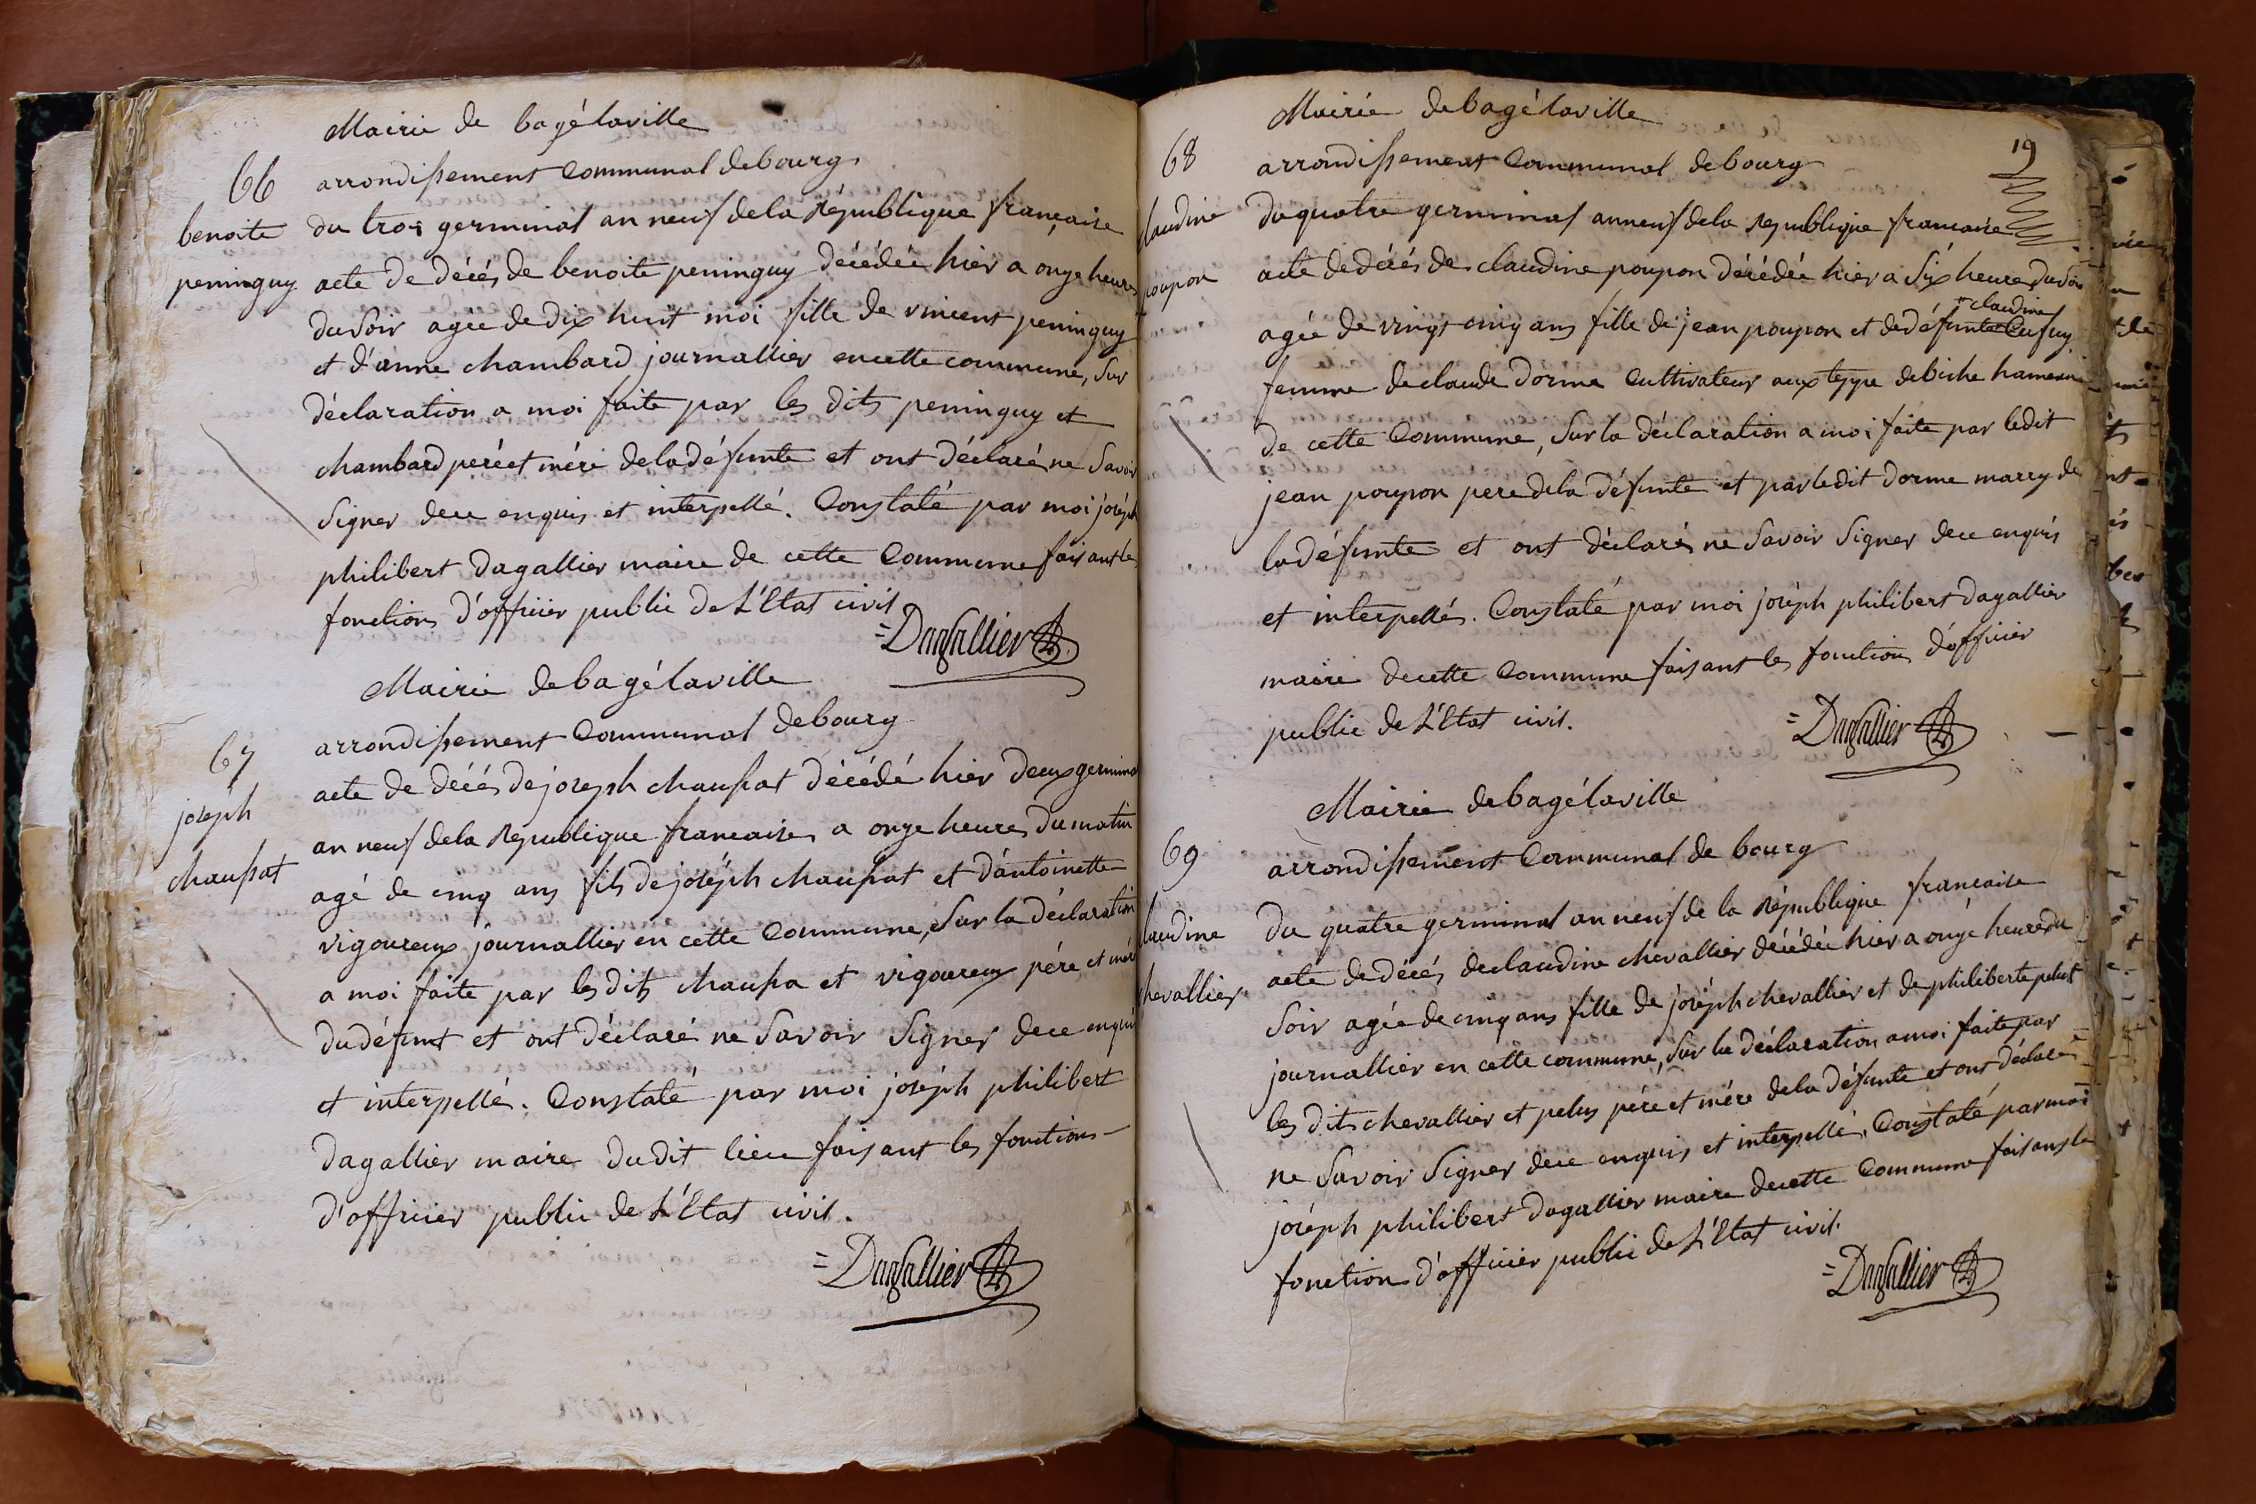 Mairie de bagélaville
66
arrondissement Communal debourg
du trois germinal an neuf dela République française
benoite
peninguy
acte de décés de benoite peninguy décédée hier a onze heures
du Soir agée de dix huit moi fille de vincent peninguy
et d'anne chambard journallier encette commune, Sur
déclaration a moi faite par les dits peninguy et
chambard peré et mére dela défunte et ont déclaré ne Savoir
Signer dece enquis et interpellé. Constaté par moi joséph
philibert dagallier maire de cette Commune faisant les
fonctions d'officier public de L'Etat civil
=Dagallier
Mairie debagélaville
67
arrondissement Communal debourg
joséph
chaussat
acte de décés de joseph chaussat décédé hier deux germinal
an neuf dela République francaise, a onze heures du matin
agé de cinq ans fils de joséph chaussat et d'antoinette
vigoureux journallier en cette Commune, Sur la déclaration
a moi faite par les dits chaussa et vigoureux pére et mére
du défunt et ont déclaré ne Savoir Signer dece enquis
et interpellé. Constaté par moi joséph philibert
dagallier maire dudit lieu faisant les fonctions
d'officier public de L'Etat civil.
=Dagallier
19
Mairie debagélaville
68
arrondissement Communal debourg
claudine
poupon
du quatre germinal an neuf dela République francaise
acte dedécés de claudine poupon décédée hier a Six heures du Soir
agée de vingt cinq ans fille de jean poupon et de défunte claudine
femme de claude dorme Cultivateur aux debiche hameau
de cette Commune, Sur la déclaration a moi faite par ledit
jean poupon pere dela défunte et par ledit dorme marry de
la défunte et ont déclaré ne Savoir Signer dece enquis
et interpellés. Constaté par moi joséph philibert dagallier
maire decette Commune faisant les fonctions d'officier
public de L'Etat civil.
=Dagallier
Mairie debagélaville
69
arrondissement Communal de bourg
claudine
chevallier
du quatre germinal an neuf de la République francaise
acte dedécés declaudine chevallier décédée hier a onze heures du
Soir agée de cinq ans fille de joséph chevallier et de philiberte pelus
journallier en cette commune, Sur la déclaration a moi faite par
les dits chevallier et pelus pére et mére dela défunte et ont déclaré
ne Savoir Signer dece enquis et interpellé. Constaté par moi
joséph philibert dagallier maire decette Commune faisant les
fonctions d'officier public de L'Etat civil.
=Dagallier